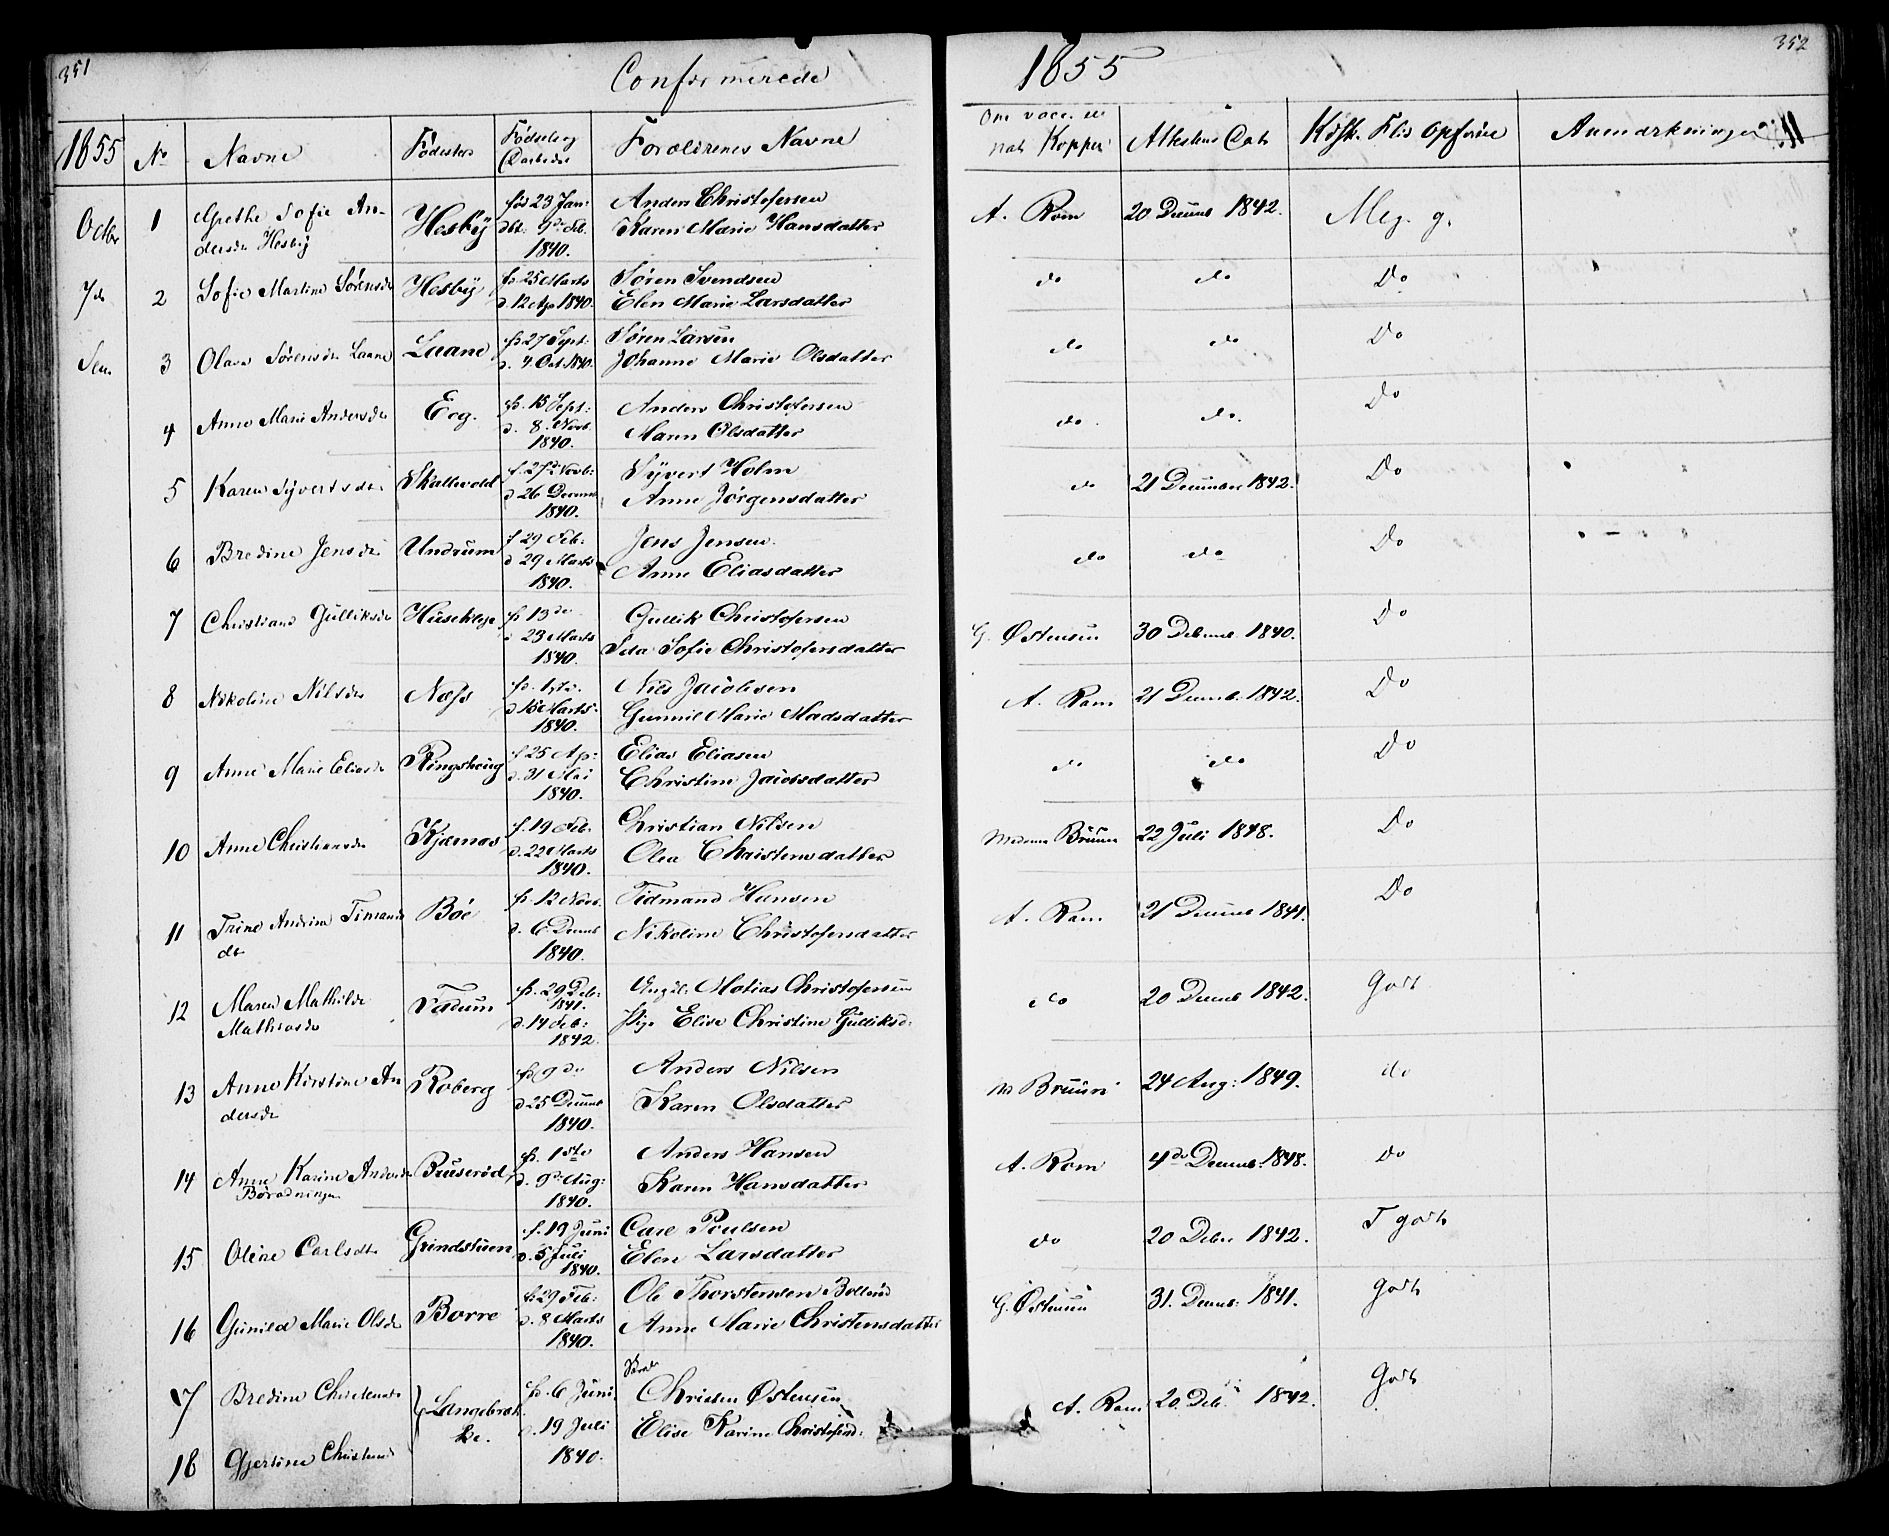 351
Confirmerede
1855
352
1855 No Navne Fødested Fødsels og Daabsdat Forældrenes Navne
Om vacc. el nat Kopper Attestens Dat Kdsk. Flid Opførsel Anmærkninger
Octbr 7de
1 Grethe Sofie An-
dersdr Hesby
Hesby
fød 23 Jan:
dbt. 9de Feb.
1840.
Anders Christofersen
Karen Marie Hansdatter
A. Ram 20 Decemb 1842. Meg. g.
2 Sofie Martine Sørensdr Hesby
f. 25 Marts
d. 12 Ap 1840.
Søren Svendsen
Elen Marie Larsdatter
do do Do
3 Olava Sørensdr Laane Laane
f. 27 Sept:
d. 4 Oct. 1840.
Søren Larsen
Johanne Marie Olsdatter
do do Do
4 Anne Marie Andersdr Eeg.
f. 15 Sept:
d. 8. Novb.
1840.
Anders Christofersen
Maren Olsdatter
do. do. Do
5 Karen Syvertsdt. Skallevold
f. 27de Novb:
d 26 Decemb
1840.
Syvert Holm
Anne Jørgensdatter
do 21 December 1842. Do
6 Bredine Jensdr Undrum
f 29 Feb:
d 29 Marts
1840.
Jens Jensen
Anne Eliasdatter
do do Do
7 Christiane Gulliksdr
f. 13de
d 23 Marts
1840.
Gullik Christofersen
Sofie Christofersdatter
G. Østensen 30 Decemb 1840. Do
8 Nikoline Nilsdr Næss
f. 1ste
d 15de Marts
1840.
Nils Jacobsen
Gunnil Marie Madsdatter
A. Ram 21 Decemb. 1842. Do
9 Anne Marie Eliasdr Ringshoug
f 25 Ap:
d. 31 Mai
1840.
Elias Eliasen
Christine Jacobsdatter
do do Do
10 Anne Christiansdr Kjærnæs
f. 19 Feb.
d. 22 Marts
1840.
Christian Nilsen
Olea Christensdatter
Madame Bruun 22 Juli 1848. Do
11 Trine Andrine Timands
dt
Bøe
f. 12 Novb.
d. 6 Decemb
1840.
Tidmand Hansen
Nikoline Christofersdatter
A. Ram 21 Decemb 1841. Do
12 Maren Mathilde
Mathiasdr
f. 29 Deb:
1841.
d. 14 Feb:
1842.
Ungk. Matias Christofersen
Pige Elise Christine Gulliksd:
do 20 Decemb 1842. Godt
13 Anne Kirstine An
dersdr
Roberg
f 9de
d 25 Decemb
1840.
Anders Nilsen
Karen Olsdatter
M Bruun 24 Aug: 1849. do
14 Anne Karine Andersdr
Bruserød
f. 1ste
d. 9de Aug:
1840.
Anders Hansen
Karen Hansdatter
A. Ram 4de Decemb. 1848. Do
15 Oline Carlsdt. Grindstuen
f. 19 Juni
d. 5 Juli
1840.
Carl Poulsen
Elen Larsdatter
do 20 Debr 1842. T godt
16 Gunild Marie Olsdr Borre
f 29 Feb:
d. 8 Marts
1840.
Ole Thorstensen
Anne Marie Christensdatter
G. Østensen 31. Decemb: 1841. godt
7 Bredine Christensdr
Langebræk
ke.
f. 6 Juni
d. 19 Juli
1840.
Christen Østensen
Elise Karine Christofersd:
A. Ram 20. Deb. 1842. Godt
18 Gjertine Christensd